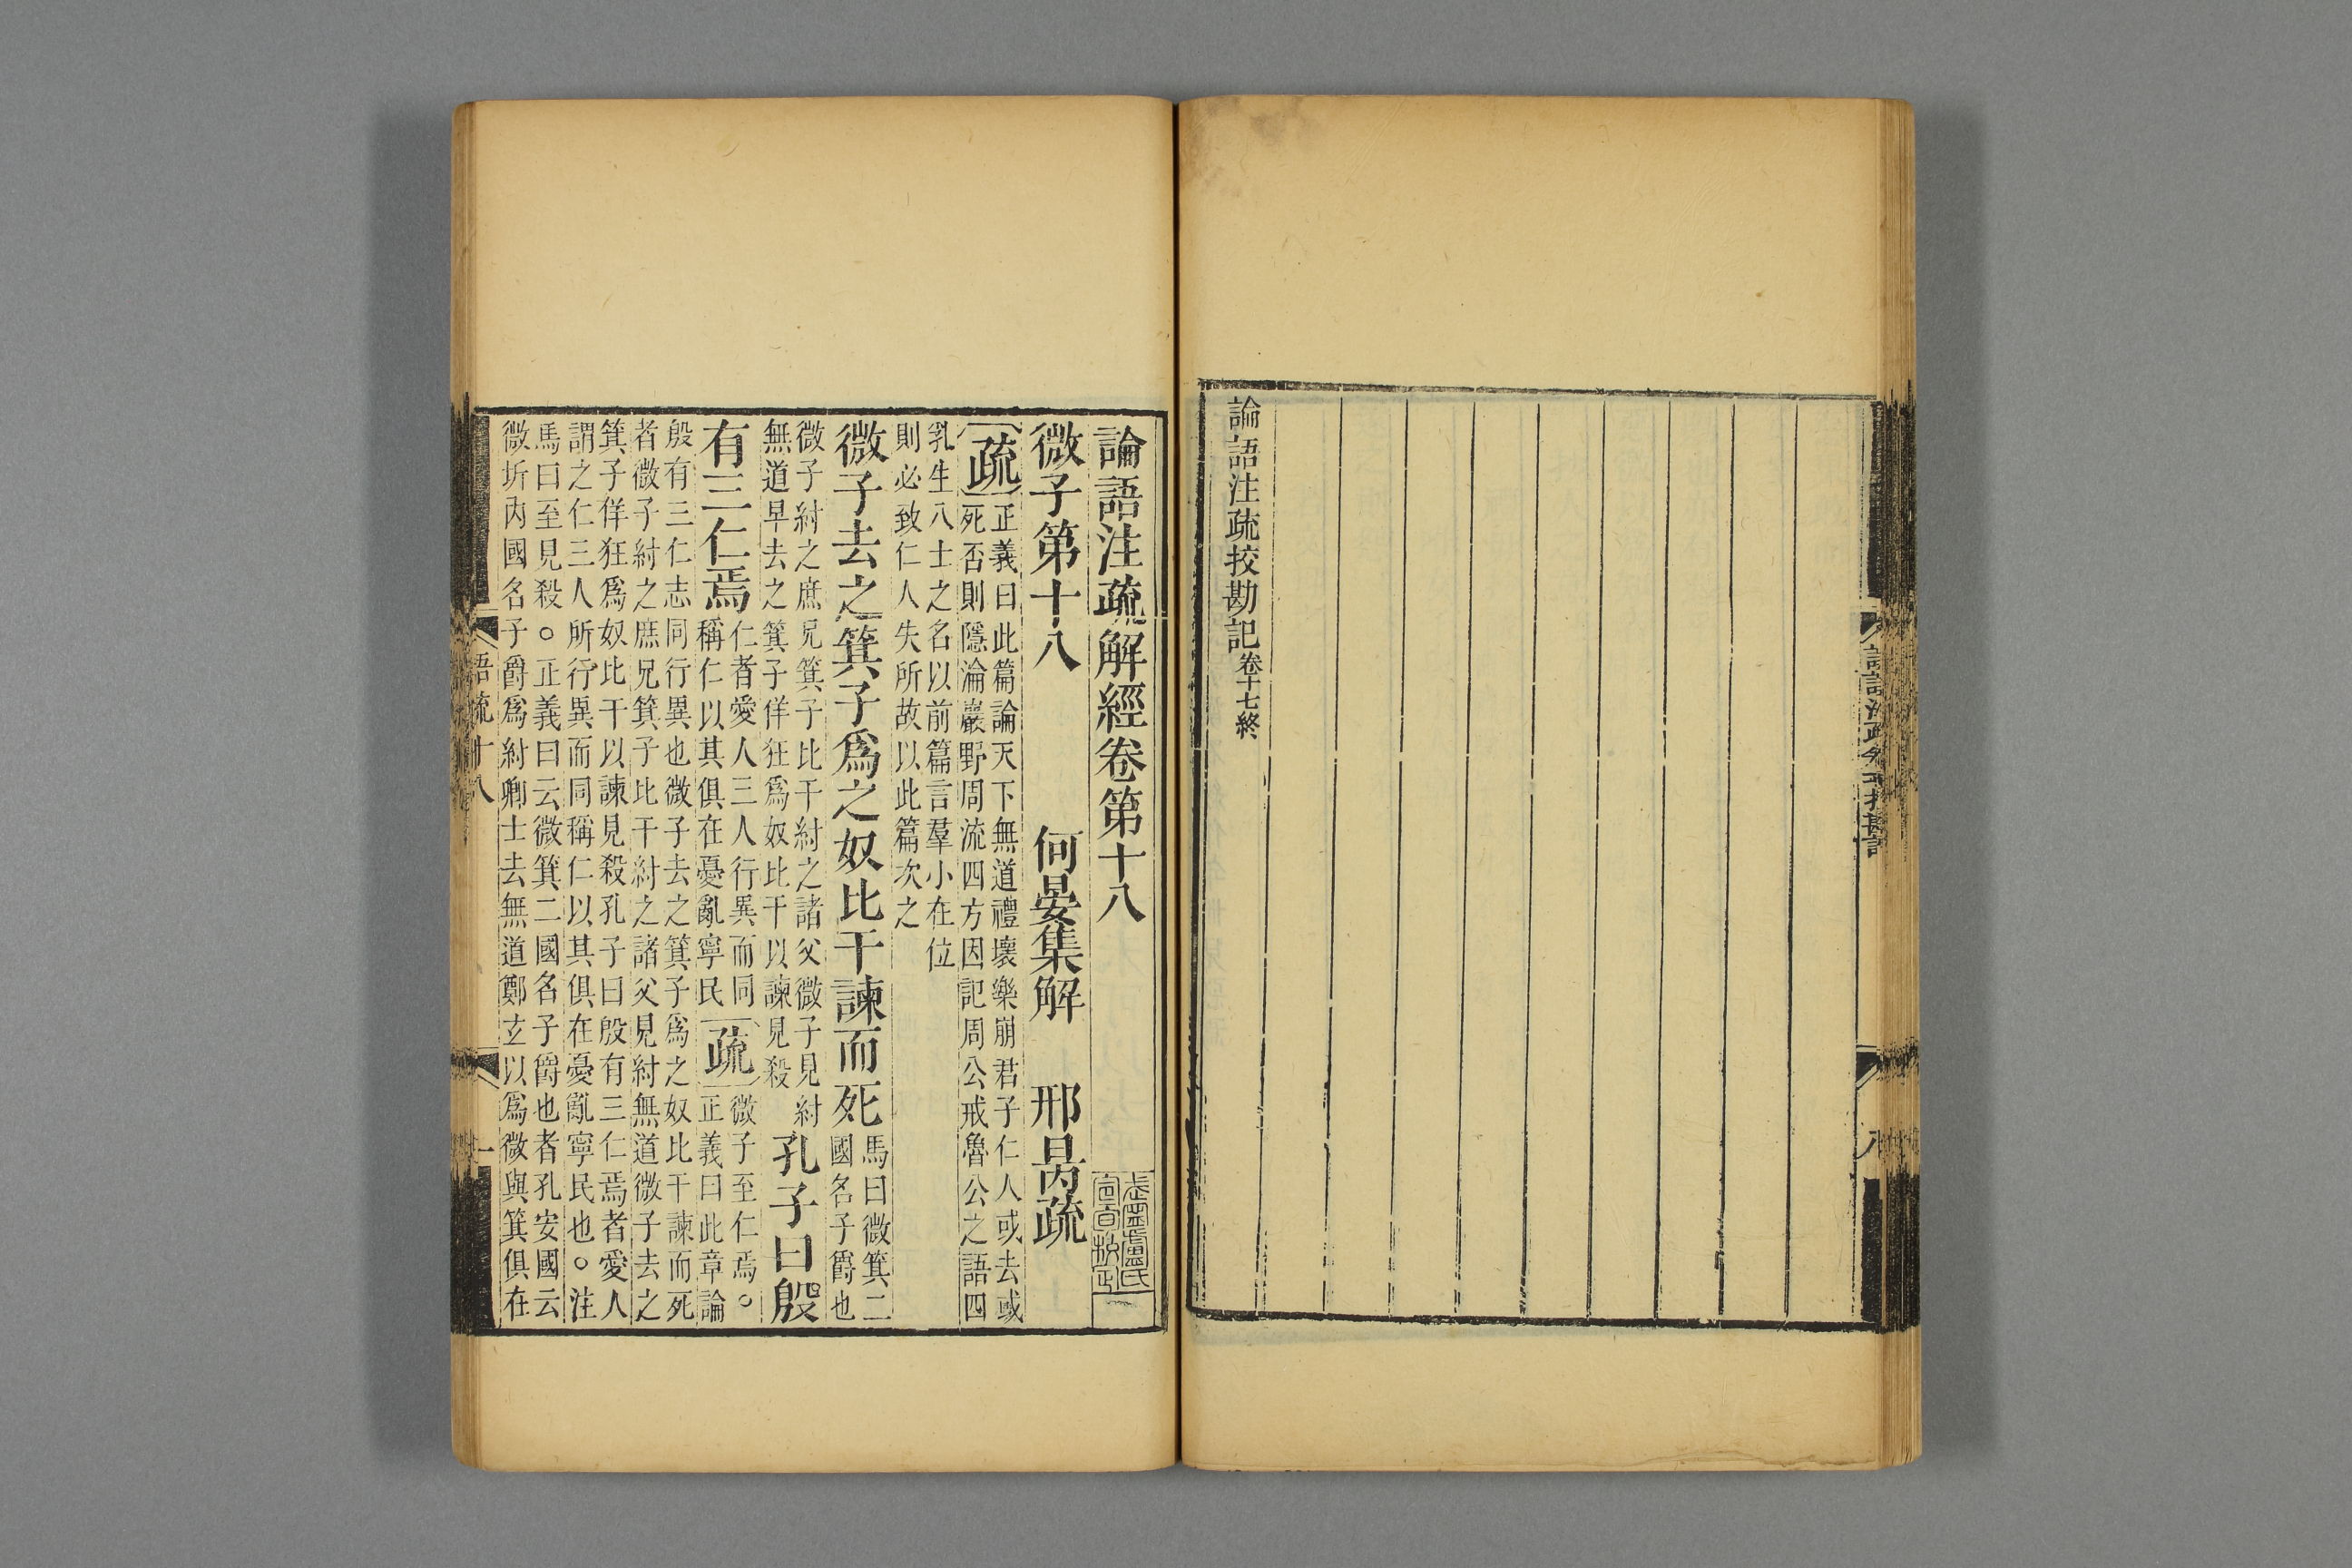 論語注疏挍勘記卷十七終
論語注疏解經卷第十八
微子第十八　何晏集解　邢昺疏
疏
正義曰此篇論天下無道禮壞樂崩君子仁人或去或
死否則隱淪巖野周流四方因記周公戒魯公之語四
乳生八士之名以前篇言羣小在位
則必致仁人失所故以此篇次之
微子去之箕子爲之奴比干諫而死
馬曰微箕二
國名子爵也
微子紂之庶兄箕子比干紂之諸父微子見紂
無道早去之箕子佯狂爲奴比干以諫見殺
孔子曰殷
有三仁焉
仁者愛人三人行異而同
稱仁以其俱在憂亂寧民
疏
微子至仁焉○
正義曰此章論
殷有三仁志同行異也微子去之箕子爲之奴比干諫而死
者微子紂之庶兄箕子比干紂之諸父見紂無道微子去之
箕子佯狂爲奴比干以諫見殺孔子曰殷有三仁焉者愛人
謂之仁三人所行異而同稱仁以其俱在憂亂寧民也○注
馬曰至見殺○正義曰云微箕二國名子爵也者孔安國云
微圻內國名子爵爲紂卿士去無道鄭玄以爲微與箕俱在
語疏十八
一